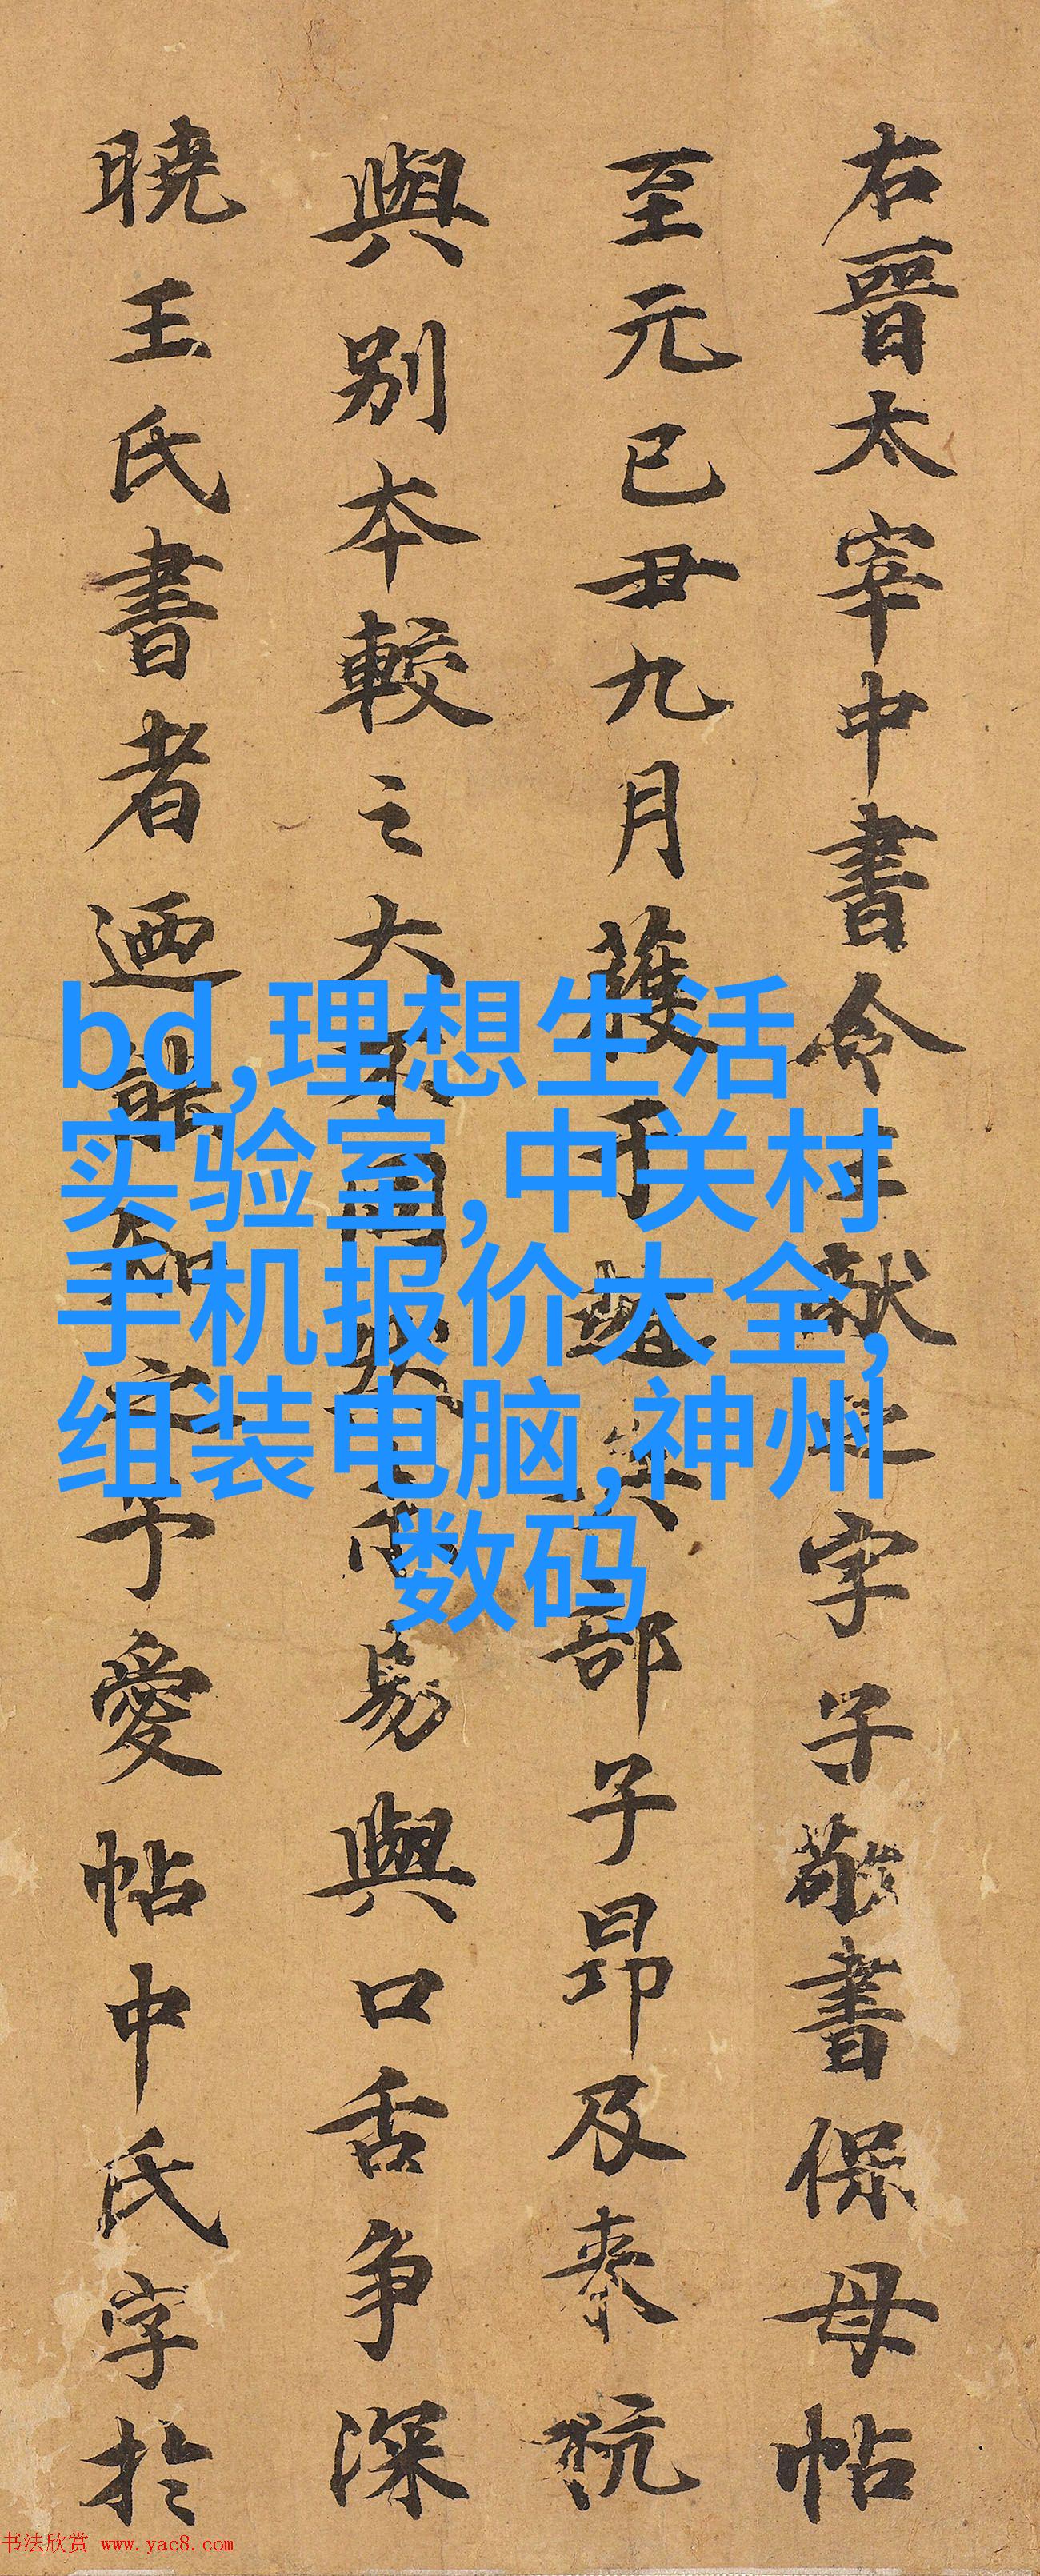 右晉太宰中書令王獻之字子敬書保母帖
至元己丑九月獲于越 部子昂及泰杭
與别本較之大 固 易與口舌争深
曉王氏書者迺能知之予愛帖中氏字於
bd,理想生活
实验室,中关村
手机报价大全,
组装电脑,神州
数码
书法欣赏 www.yac8.com